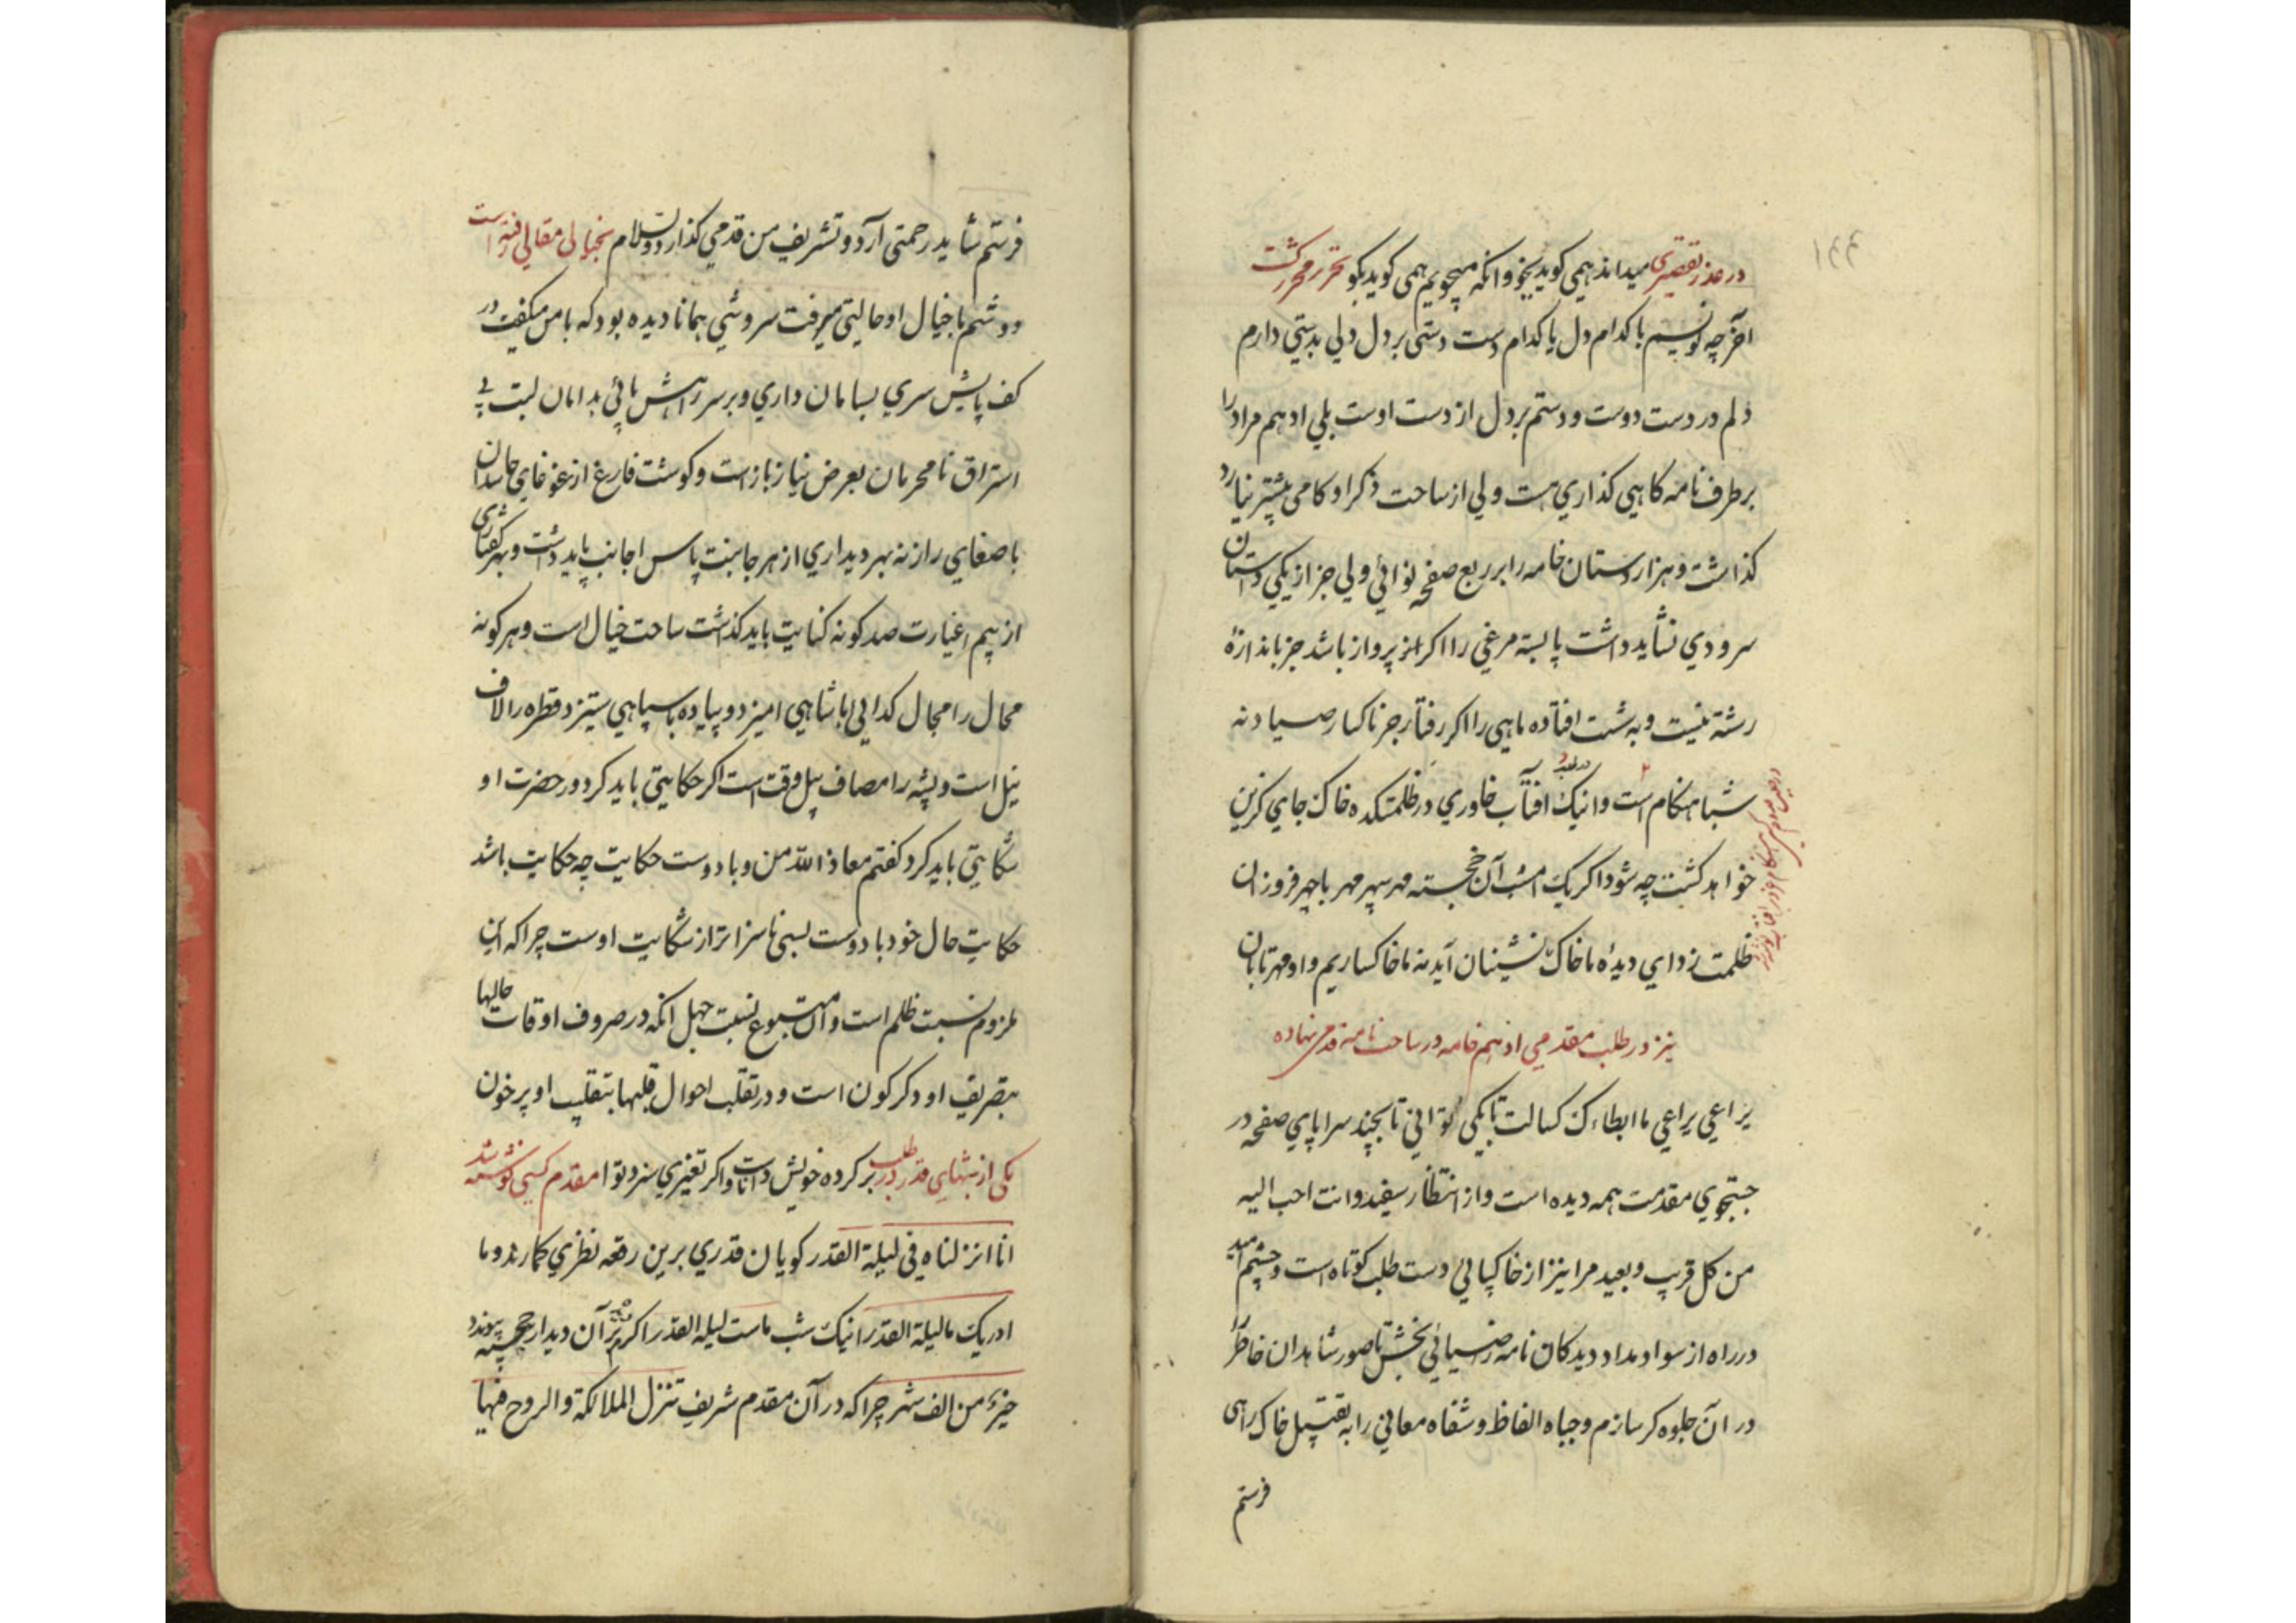 ۱۴۴
در عذر تقصیری میداند همی کوید بجو وانکه میجویم همی کوید بکو تحریر محرر کشت
آخر چه نویسم با کدام دل یا کدام دست دستی بر دل دلی بدستی دارم
دلم در دست دوست و دستم بر دل از دست اوست بلی او هم مراد را
بر طرف نامه کاهی کذاری هست ولی از ساحت ذکر او کامی پیشتر نیارد
کذاشت و هزاردستان خامه را بر ربع صفحه نوائی ولی جز از یکی داستان
سرودی نشاید داشت پا بسته مرغی را اکر از پرواز باشد جز باندازهٔ
رشته نیست و به شست افتاده ماهی را اکر رفتار جز تا کنار صیاد نه
شباهنکام است و اینک افتاب خاوری در ظلمتکده خاک جای کزین
خواهد کشت چه شود اکر یک امشب آن خجسته مهر سپهر مهر با چهر فروزان
ظلمت زدای دیدهٔ ما خاک نشینان آید نه ما خاکساریم و او مهر تابان
نیز در طلب مقدمی از هم خامه در ساحت نامه قدمی نهاده
یراعی یراعی ما ابطاءک کسالت تا بکی توانی تا بچند سراپای صفحه در
جستجوی مقدمت همه دیده است و از انتظار سفید و انت احب الیه
من کل قریب و بعید مرا نیز از خاکپائی دست طلب کوتاه است و چشم امید
در راه از سواد مداد دیدکان نامه را ضیائی بخش تا صور شاهدان خاطر را
در ان جلوه کر سازم و جباه الفاظ و شفاه معانی را به تقبیل خاک راهی
فرستم
فرستم شاید رحمتی آرد و تشریف من قدمی کذارد والسلام بخیالی مقالی رفته است
دوشم با خیال او حالتی میرفت سروشی همانا دیده بود که با من میکفت در
کف پایش سری بسامان داری و بر سر راهش پائی بدامان لبت بی
استراق نامحرمان بعرض نیاز باز است و کوشت فارغ از غوغای حاسدان
با صغای راز نه بهر دیداری از هر جانبت پاس اجانب باید داشت و بهر کفتاری
از بیم اغیارت صد کونه کنایت باید کذشت ساحت خیال است و هر کونه
محال را مجال کدائی با شاهی امیزد و پیاده با سپاهی ستیزد قطره را لاف
نیل است و پشه را مصاف پیل وقت است اکر حکایتی باید کرد در حضرت او
شکایتی باید کرد کفتم معاذ الله من و با دوست حکایت چه حکایت باشد
حکایت حال خود با دوست بسی ناسزاتر از شکایت اوست چرا که این
ملزوم نسبت ظلم است و ان متبوع نسبت جهل انکه در صروف اوقات حالها
بتصریف او دکرکون است و در تقلب احوال قلبها بتقلیب او پر خون
یکی از شبهای قدر در طلب بر کرده خویش داناست و اکر تغییری سزد توانا مقدم کسی نوشته شد
انا انزلناه فی لیلة القدر کویا ن قدری برین رقعه نظری کمارند و ما
ادریک ما لیلة القدر اینک شب ماست لیله القدر اکر بر آن دیدار خجسته پیوندد
خیر من الف شهر چرا که در آن مقدم شریف تنزل الملائکة والروح فیها